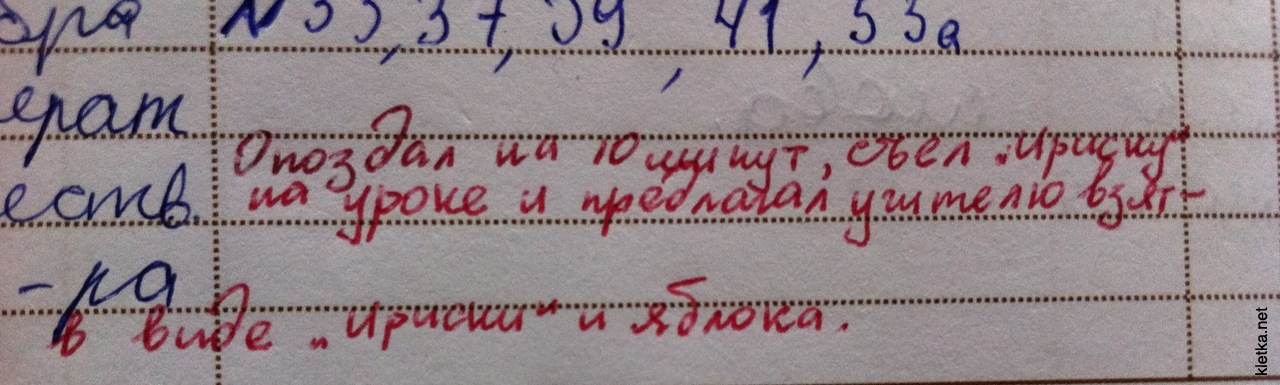 ѳра № 35, 37, 39, 41, 53а
ерат
Опоздал на 10 минут, съел „Ириску“
еств. на уроке и предлагал учителю взят-
-ра
в виде „Ириски“ и яблока.
kletka.net